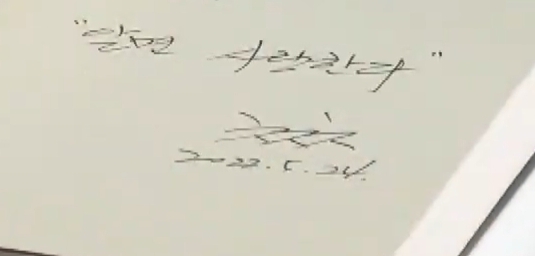 "알면 사랑한다"
2022. 5. 24.